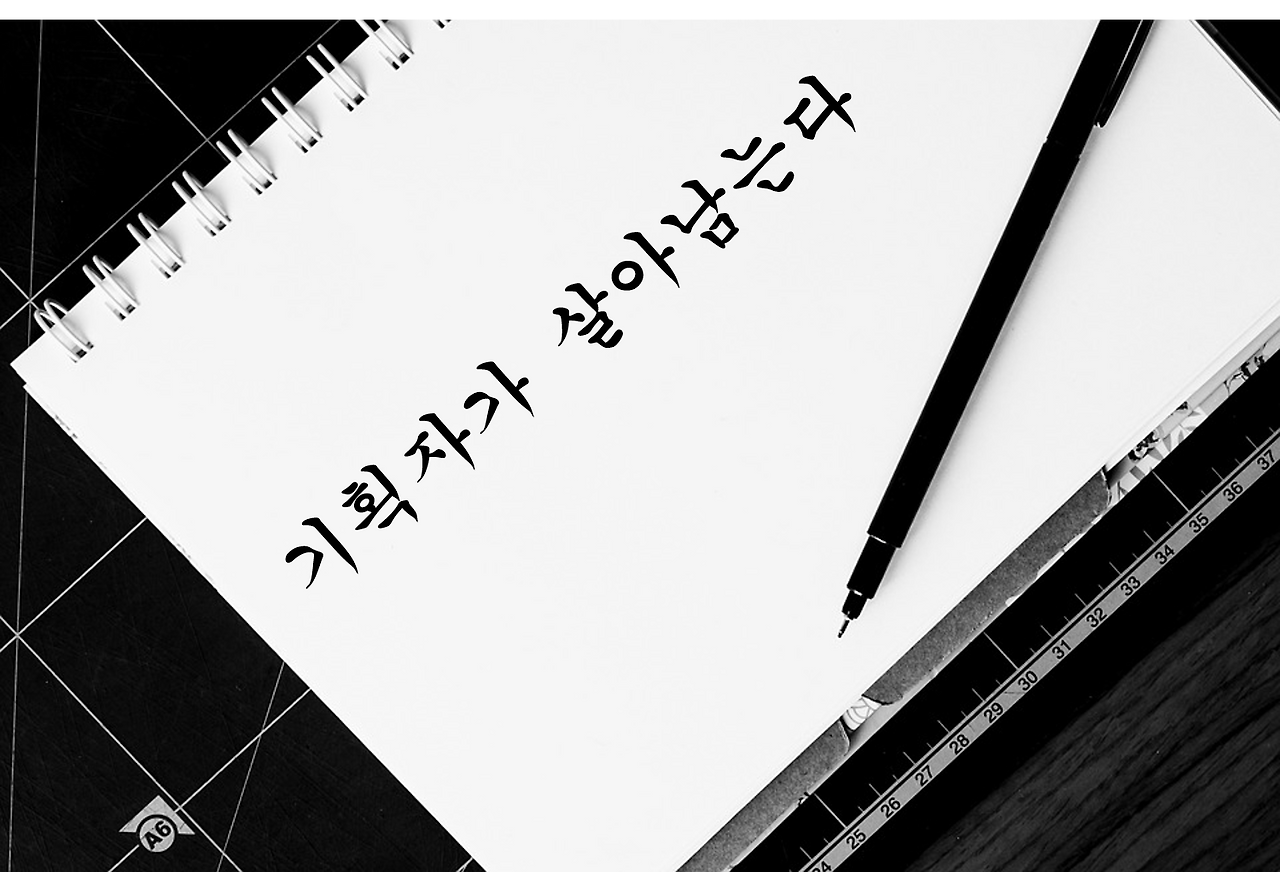 기획자가 살아남는다
A6
24 25 26 27 28 29 30 31 32 33 34 35 36 37